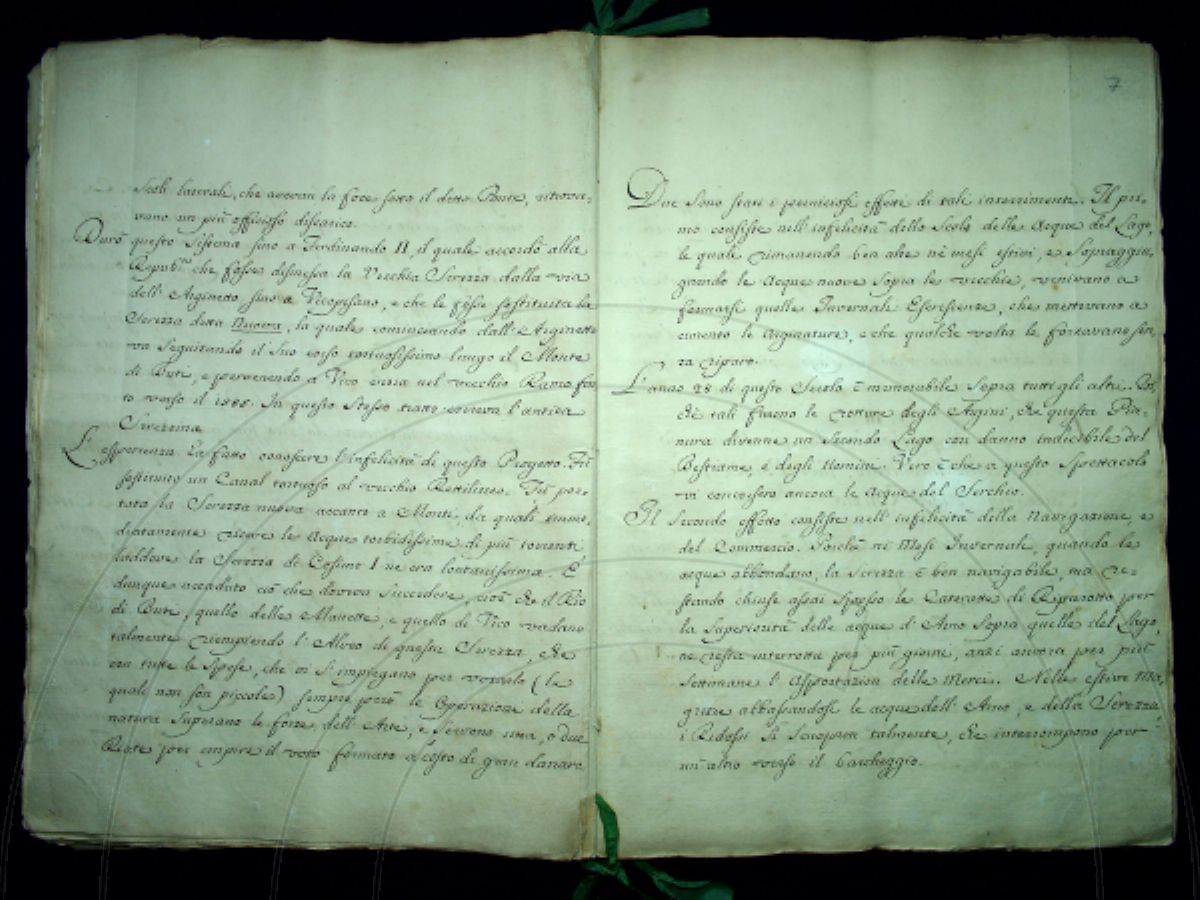 Scoli laterali, che avevan la foce sotto il detto Ponte, ritrova-
vano un più officioso discarico.
Durò questo sistema sino a Ferdinando II, il quale accordò alla
Repub.ca che fosse dismessa la Vecchia Serezza dalla via
dell' Arginetto sino a Vicopisano, e che le fosse sostituita la
Serezza detta Nuova, la quale cominciando dall' Arginetto
va seguitando il suo corso tortuosissimo lungo il Monte
di Buti, e pervenendo a Vico entra nel vecchio Ramo
to verso il In questo stesso tratto correva l'antica
Serezzina
L'esperienza ha fatto conoscere l'infelicità di questo Progetto. Fù
sostituito un Canal tortuoso al vecchio Rettilineo. Fù por-
tato la Serezza nuova accanto a Monti, da quali imme-
diatamente riceve le Acque torbidissime di più torrenti
laddove la Serezza di Cosimo I ne era lontanissima. E'
dunque accaduto ciò che doveva succedere, cioè che il Rio
di Buti, quello delle Manette, e quello di Vico vadano
talmente riempiendo l'Alveo di questa Serezza, che
con tutte le spese, che vi s'impiegano per votarlo (le
quali non son piccole) sempre però le Operazioni della
natura superano le forze dell' Arte, e servono una, o due
Piene per empire il voto formato a costo di gran danaro.
7
Due sono stati i perniciosi effetti di tali interrimenti. Il pri-
mo consiste nell' infelicità dello Scolo delle Acque del Lago,
le quali rimanendo ben alte ne' mesi estivi, e sopraggiun-
gendo le Acque nuove sopra le vecchie, venivano a
formarsi quelle Invernali Escrescenze, che mettevano a
cimento le Arginature, e che qualche volta le forzavano sen-
za riparo.
L'anno 28 di questo Secolo è memorabile sopra tutti gli altri.
chè tali furono le rotture degli Argini, che questa Pia-
nura divenne un secondo Lago con danno indicibile del
Bestiame, e degli Uomini. Vero è che a questo Spettacolo
vi concorsero ancora le Acque del Serchio.
Il Secondo effetto consiste nell' infelicità della Navigazione, e
del Commercio. Poichè ni Mesi Invernali, quando le
acque abbondano, la Serezza è ben navigabile, ma re-
stando chiuse assai spesso le Cateratte di Riparotto per
la superiorità delle acque d'Arno sopra quelle del Lago,
ne resta interrotta per più giorni, anzi ancora per più
settimane l'Asportazion delle Merci. Nelle estive Ma-
grezze abbassandosi le acque dell' Arno, e della Serezza,
i Ridossi si scuopron talmente, che interrompono per
un' altro verso il barcheggio.